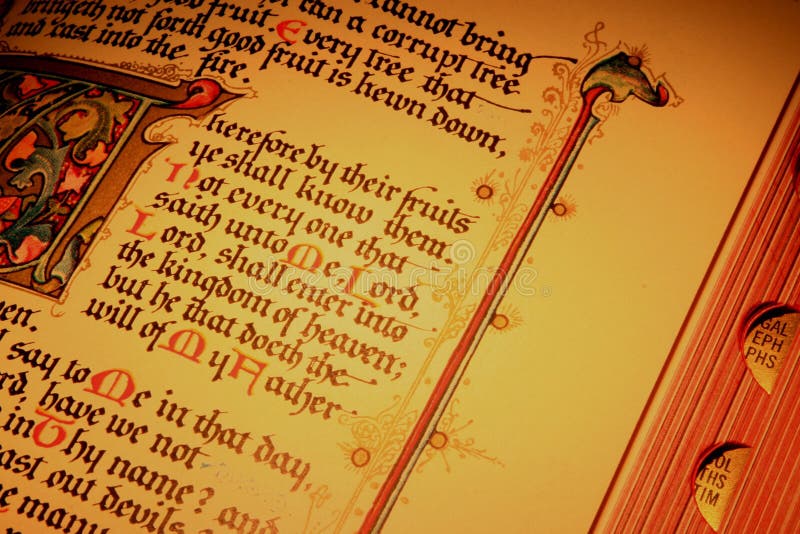 cannot bring
nor can a corrupt tree
good fruit Every tree that
bringeth not forth good fruit is hewn down,
and cast into the fire.
Therefore by their fruits
ye shall know them.
Not every one that
saith unto Me Lord,
Lord, shall enter into
the kingdom of heaven;
but he that doeth the
will of My Father
ven.
say to Me in that day,
ord, have we not
in Thy name? and
cast out devils
many
GAL
EPH
PHS
OL
THS
TIM
dreamstime